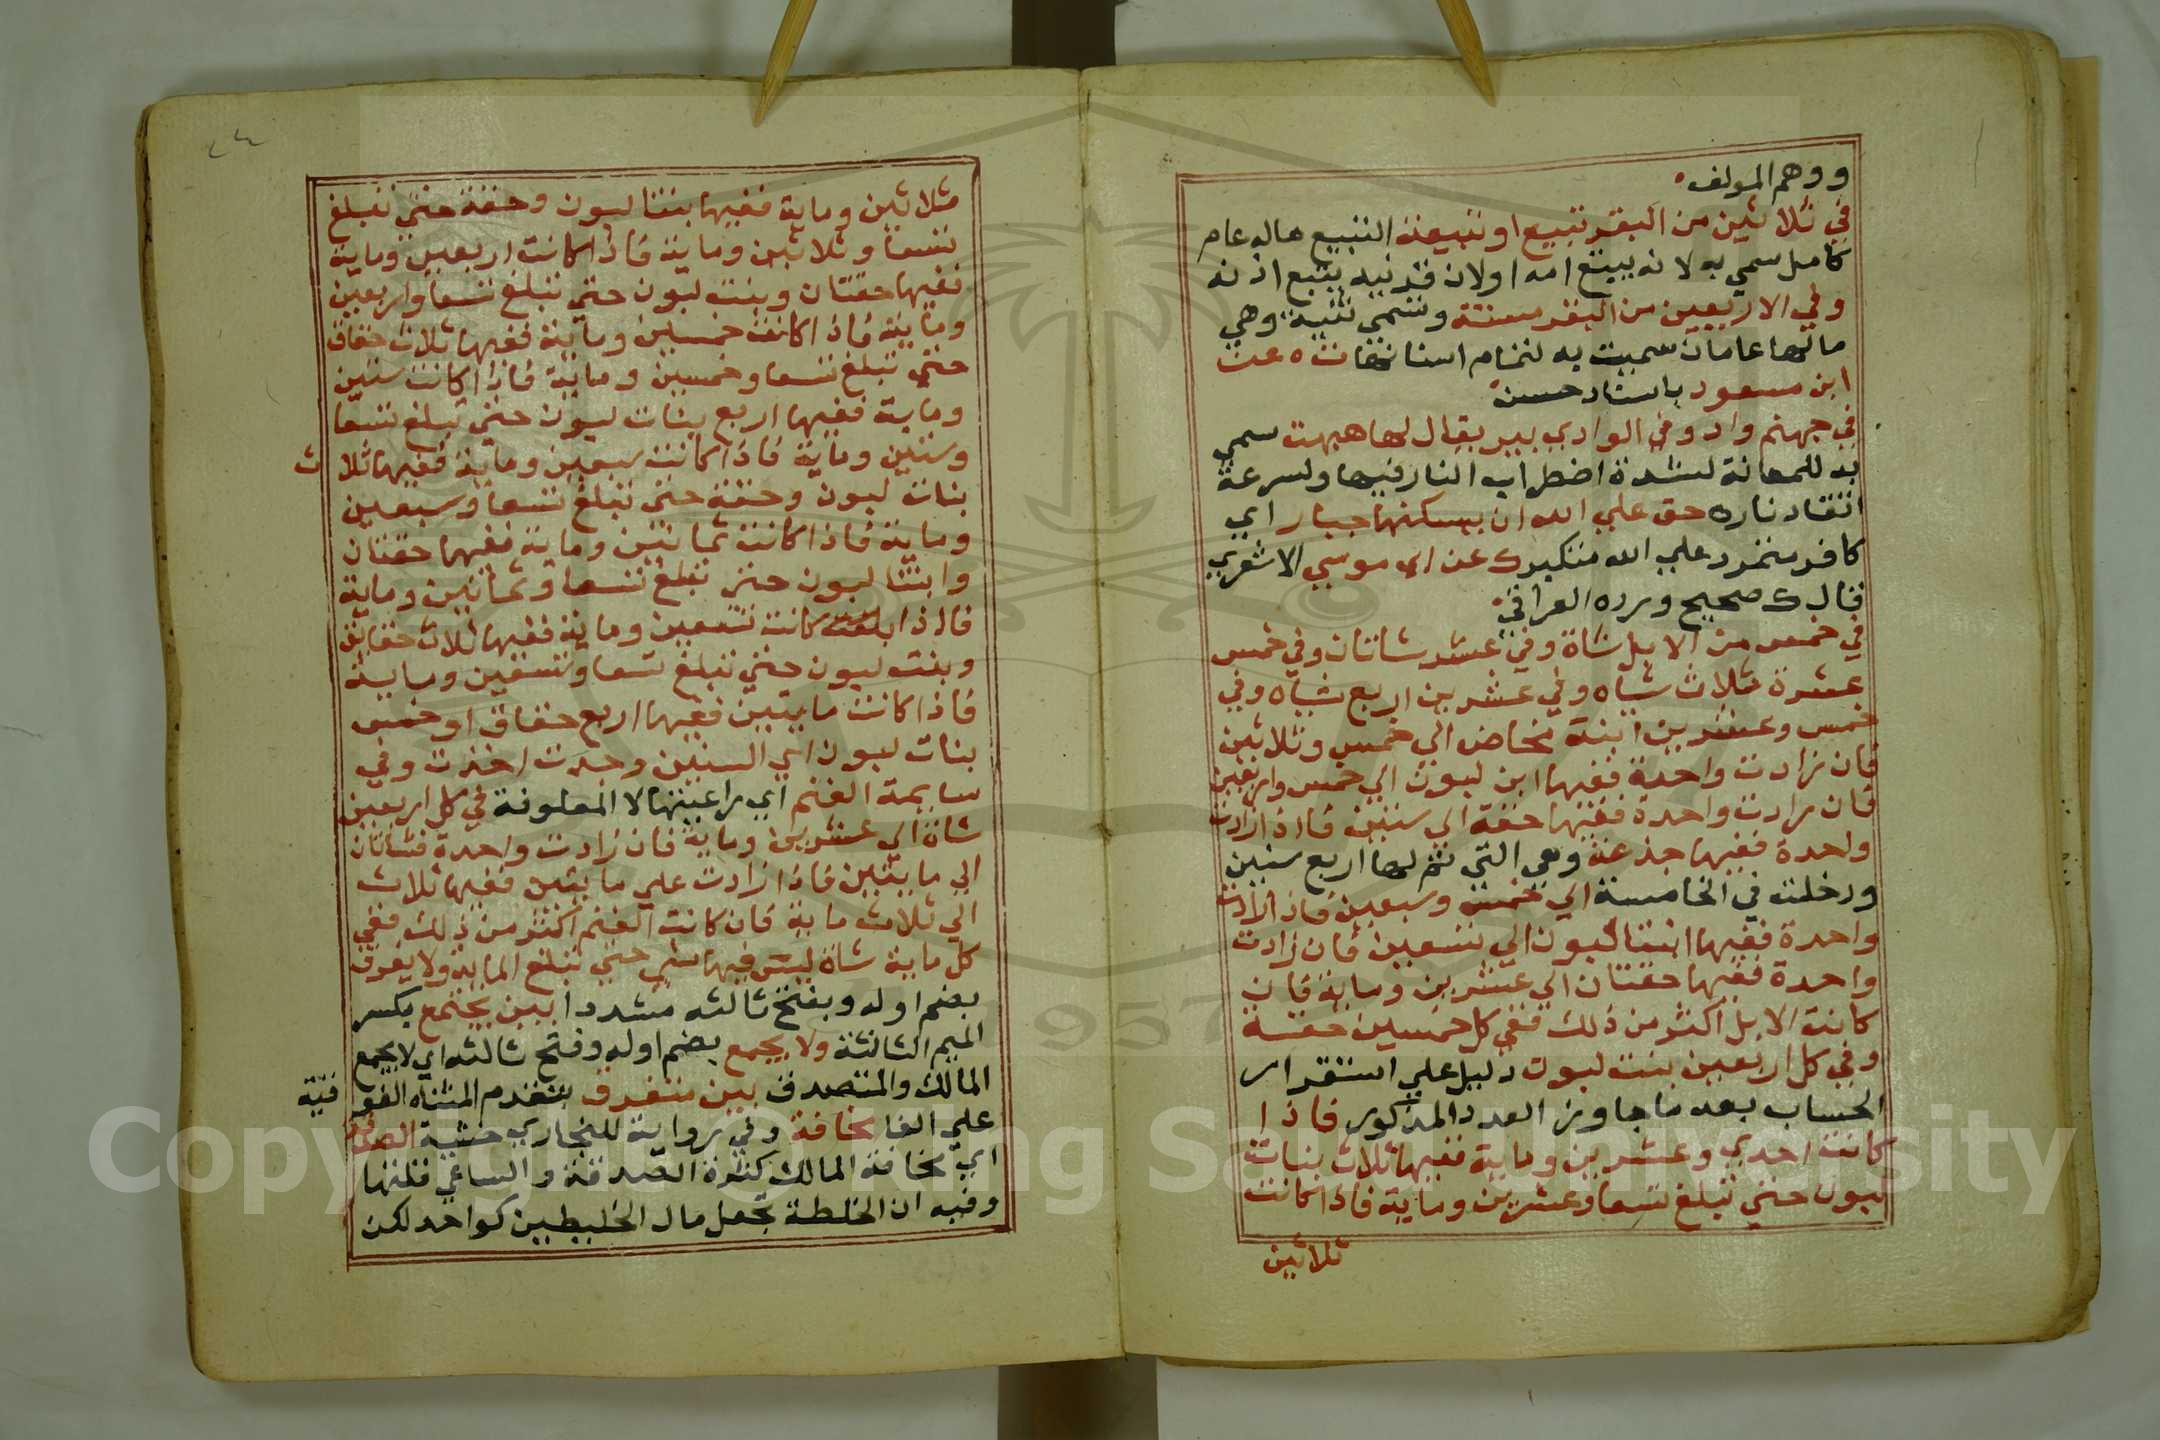 ووهم المولف
في ثلاثين من البقر تبيع او تبيعة التبيع ماله عام
كامل سمي به لانه يتبع امه او لان قرنيه يتبع اذنه
وفي الاربعين من البقر مسنة وتسمي ثنية وهي
مالها عامان سميت به لتمام اسنانها ت ه عن
ابن مسعود باسناد حسن
في جهنم واد وفي الوادي بير يقال لها هبهت سمي
به للمعانة لشدة اضطراب النار فيها ولسرعة
اتقاد ناره حق علي الله ان يسكنها جبار اي
كافر متمرد علي الله متكبر ك عن ابي موسي الاشعري
قال ك صحيح ورده العراقي
في خمس من الابل شاة وفي عشر شاتان وفي خمس
عشرة ثلاث شياه وفي عشرين اربع شياه وفي
خمس وعشرين ابنة مخاض الي خمس وثلاثين
فان زادت واحدة ففيها ابن لبون الي خمس واربعين
فان زادت واحدة ففيها حقة الي ستين فااذا زادت
واحدة ففيها جذعة وهي التي تم لها اربع سنين
ودخلت في الخامسة الي خمس وسبعين فاذا زادت
واحدة ففيها ابنتا لبون الي تسعين فان زادت
واحدة ففيها حقتان الي عشرين وماية فان
كانت الابل اكثر من ذلك ففي كل خمسين حقة
وفي كل اربعين بنت لبون دليل علي استقرار
الحساب بعد ما جاوز العدد المذكور فاذا
كانت احدي وعشرين وماية ففيها ثلاث بنات
لبون حتي تبلغ تسعا وعشرين وماية فاذا كانت
ثلاثين
٢٤
ثلاثين وماية ففيها بنتا لبون وحقة حتي تبلغ
تسعا وثلاثين وماية فاذا كانت اربعين وماية
ففيها حقتان وبنت لبون حتي تبلغ تسعا واربعين
وماية فاذا كانت خمسين وماية ففيها ثلاث حقاق
حتي تبلغ تسعا وخمسين وماية فاذا كانت ستين
وماية ففيها اربع بنات لبون حتي تبلغ تسعا
وستين وماية فاذا كانت سبعين وماية ففيها ثلا ث
بنات لبون وحقة حتي تبلغ تسعا وسبعين
وماية فاذا كانت ثمانين وماية ففيها حقتان
وابنتا لبون حتي تبلغ تسعا وثمانين وماية
فااذا بلغت كانت تسعين وماية ففيها ثلاث حقايق
وبنت لبون حتي تبلغ تسعا وتسعين وماية
فاذا كانت مايتين ففيها اربع حقاق او خمس
بنات لبون اي السنين وجدت اخذت وفي
سايمة الغنم اي راعيتها لا المعلوفة في كل اربعين
شاة الي عشرين وماية فان زادت واحدة فشاتان
الي مايتين فاذا زادت علي مايتين ففيها ثلاث
الي ثلاث ماية فان كانت الغنم اكثر من ذلك ففي
كل ماية شاة ليس فيها شي حتي تبلغ الماية ولا يفرق
بضم اوله وبفتح ثالثه مشددا بين مجتمع بكسر
الميم الثانية ولا يجمع بضم اوله وفتح ثالثه اي لا يجمع
المالك والمتصدق بين متفرق بتقدم المثناه الفو قية
علي الفا مخافة وفي رواية للبخاري خشية الصدقة
اي مخافة المالك كثرة الصدقة والساعي قلتها
وفيه ان الخلطة تجعل مال الخليطين كواحد لكن
Copyright © King Saud University
1957